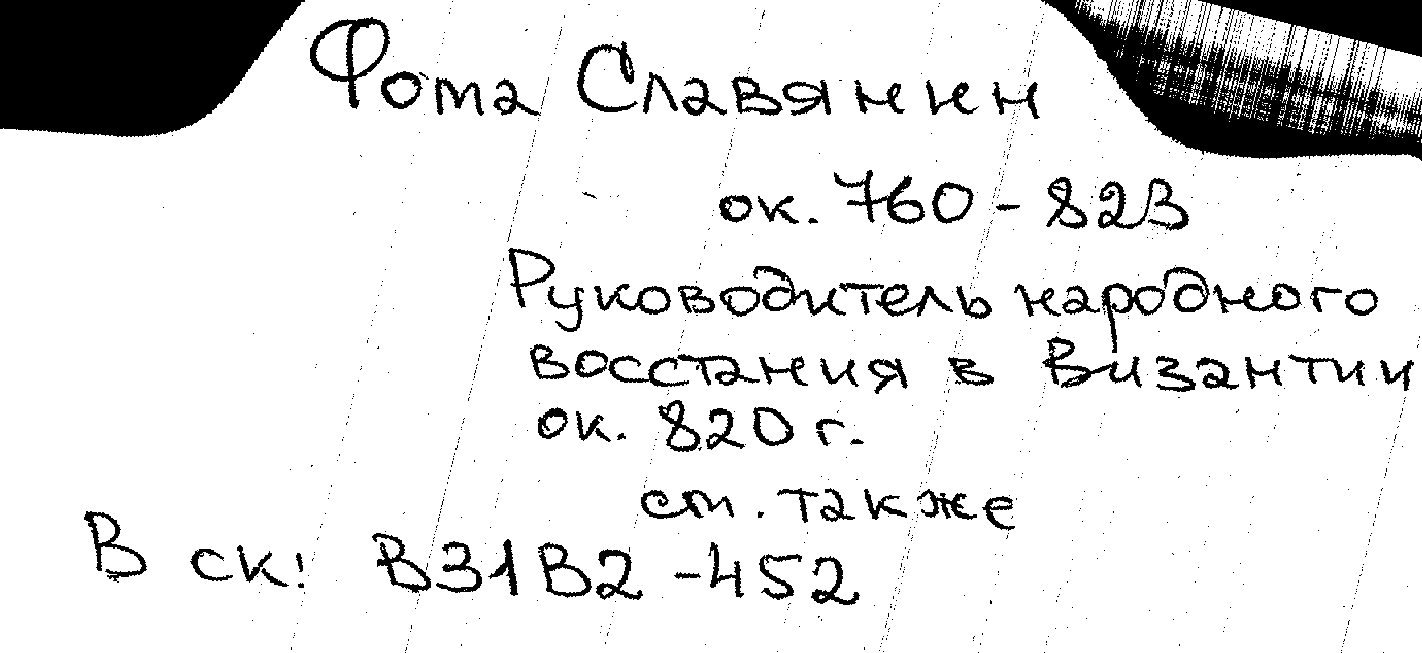 Фома Славянин
ок. 760 - 823
Руководитель народного
восстания в Византии
ок. 820 г.
см. также
В ск! В31В2 - 452